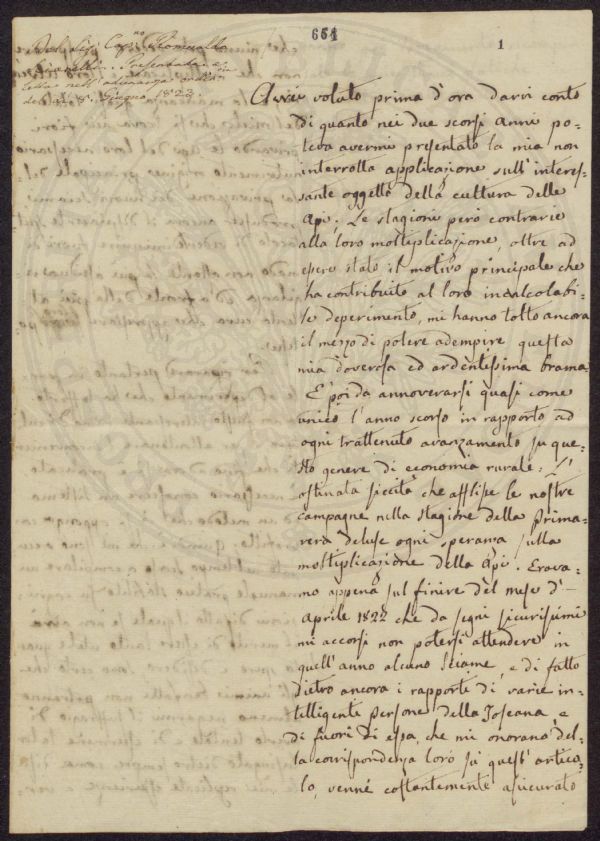 654
1
Del Sig. Cap.no Romualdo
Presentata e
letta nell'adunanza
del dì 8. Giugno 1823.
Avrei voluto prima d'ora darvi conto
di quanto nei due scorsi Anni po-
teva avermi presentato la mia non
interrotta applicazione sull'interes-
sante oggetto della cultura delle
Api. Le stagioni però contrarie
alla loro moltiplicazione, oltre ad
essere stato il motivo principale che
ha contribuito al loro incalcolabi-
le deperimento, mi hanno tolto ancora
il mezzo di potere adempire questa
mia doverosa ed ardentissima brama.
E' poi da annoverarsi quasi come
unico l'anno scorso in rapporto ad
ogni trattenuto avanzamento su que-
sto genere di economia rurale. L'
ostinata siccità che afflisse le nostre
campagne nella stagione della Prima-
vera deluse ogni speranza sulla
moltiplicazione delle Api. Erava-
mo appena sul finire del mese d'-
Aprile 1822 che da segni sicurissimi
mi accorsi non potersi attendere in
quell'anno alcuno sciame, e di fatto
dietro ancora i rapporti di varie in-
telligenti persone della Toscana, e
di fuori di essa, che mi onorano del-
la corrispondenza loro su quest'artico-
lo, venni costantemente assicurato